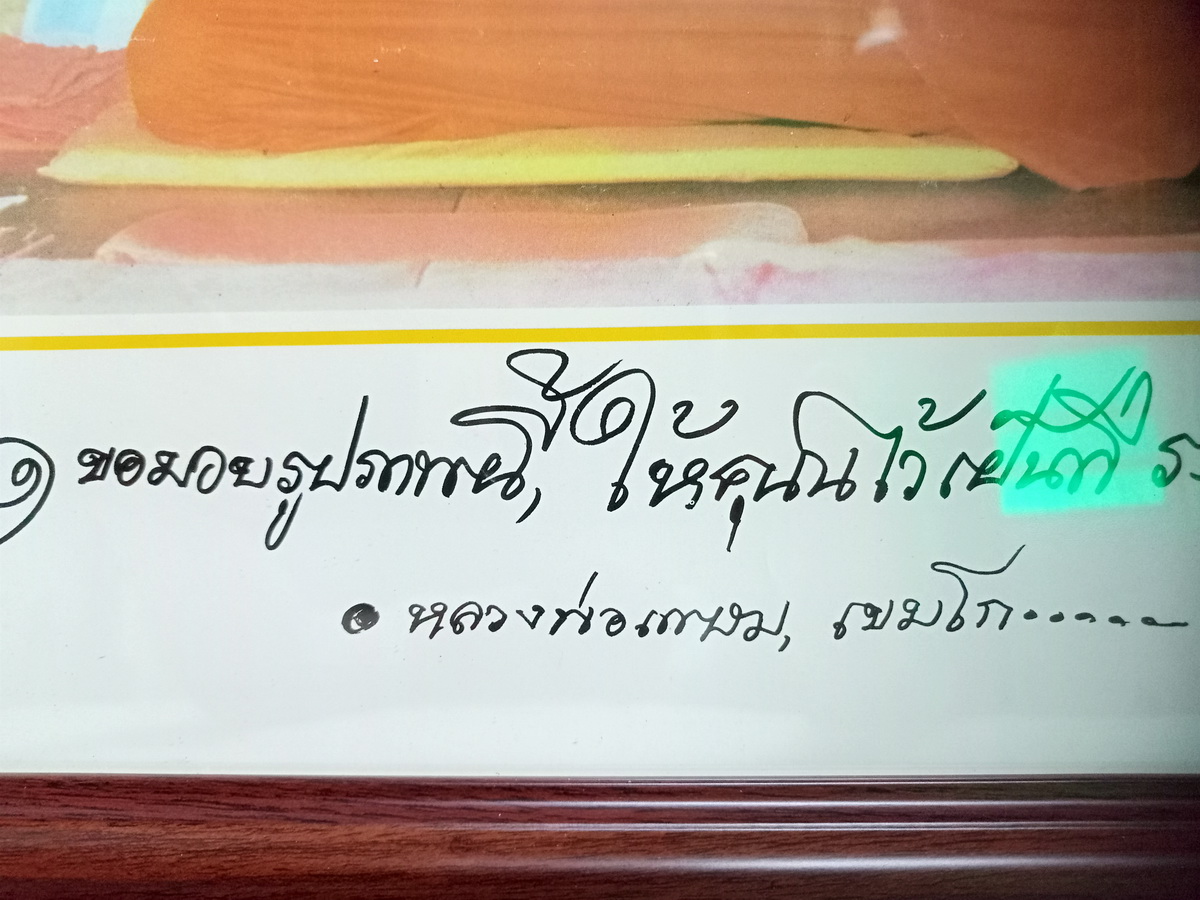 ขอมอบรูปภาพนี้, ให้คุณโน ไว้เป็นที่ ระ
หลวงพ่อเกษม, เขมโก.....